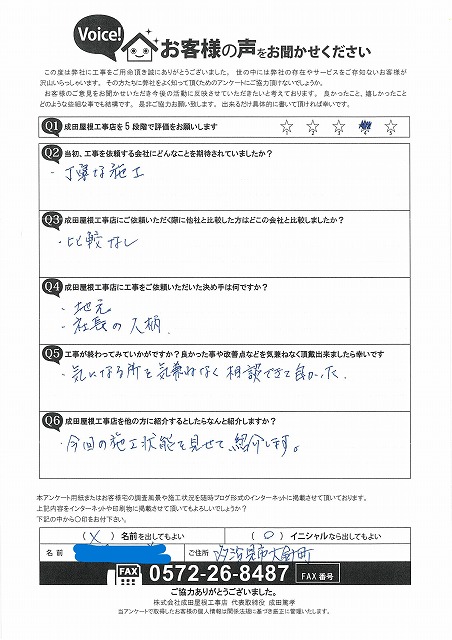 Voice!
お客様の声をお聞かせください
この度は弊社に工事をご用命頂き誠にありがとうございました。世の中には弊社の存在やサービスをご存知ないお客様が
沢山いらっしゃいます。その方たちに弊社をよく知って頂くためのアンケートにご協力頂けないでしょうか。
お客様のご意見をお聞かせいただき今後の活動に反映させていただきたいと考えております。良かったこと、嬉しかったこと
どのような些細な事でも結構です。是非ご協力お願い致します。出来るだけ具体的に書いて頂ければ幸いです。
Q1 成田屋根工事店を5段階で評価をお願いします
1 2 3 4 5
Q2 当初、工事を依頼する会社にどんなことを期待されていましたか？
・丁寧な施工
Q3 成田屋根工事店にご依頼いただく際に他社と比較した方はどこの会社と比較しましたか？
・比較なし
Q4 成田屋根工事店に工事をご依頼いただいた決め手は何ですか？
・地元
・社長の人柄.
Q5 工事が終わってみていかがですか？良かった事や改善点などを気兼ねなく頂戴出来ましたら幸いです
・気になる所を気兼ねなく相談できて良かった.
Q6 成田屋根工事店を他の方に紹介するとしたらなんと紹介しますか？
・今回の施工状態を見せて紹介します。
本アンケート用紙またはお客様宅の調査風景や施工状況を随時ブログ形式のインターネットに掲載させて頂いております。
上記内容をインターネットや印刷物に掲載させて頂いてもよろしいでしょうか？
下記の中から〇印をお付け下さい。
（×）名前を出してもよい （○）イニシャルなら出してもよい
名前 ご住所 多治見市大針町
FAX 0572-26-8487 FAX番号
ご協力ありがとうございました。
株式会社成田屋根工事店 代表取締役 成田篤孝
当アンケートで取得したお客様の個人情報は関係法規に基づき厳正に管理いたします。